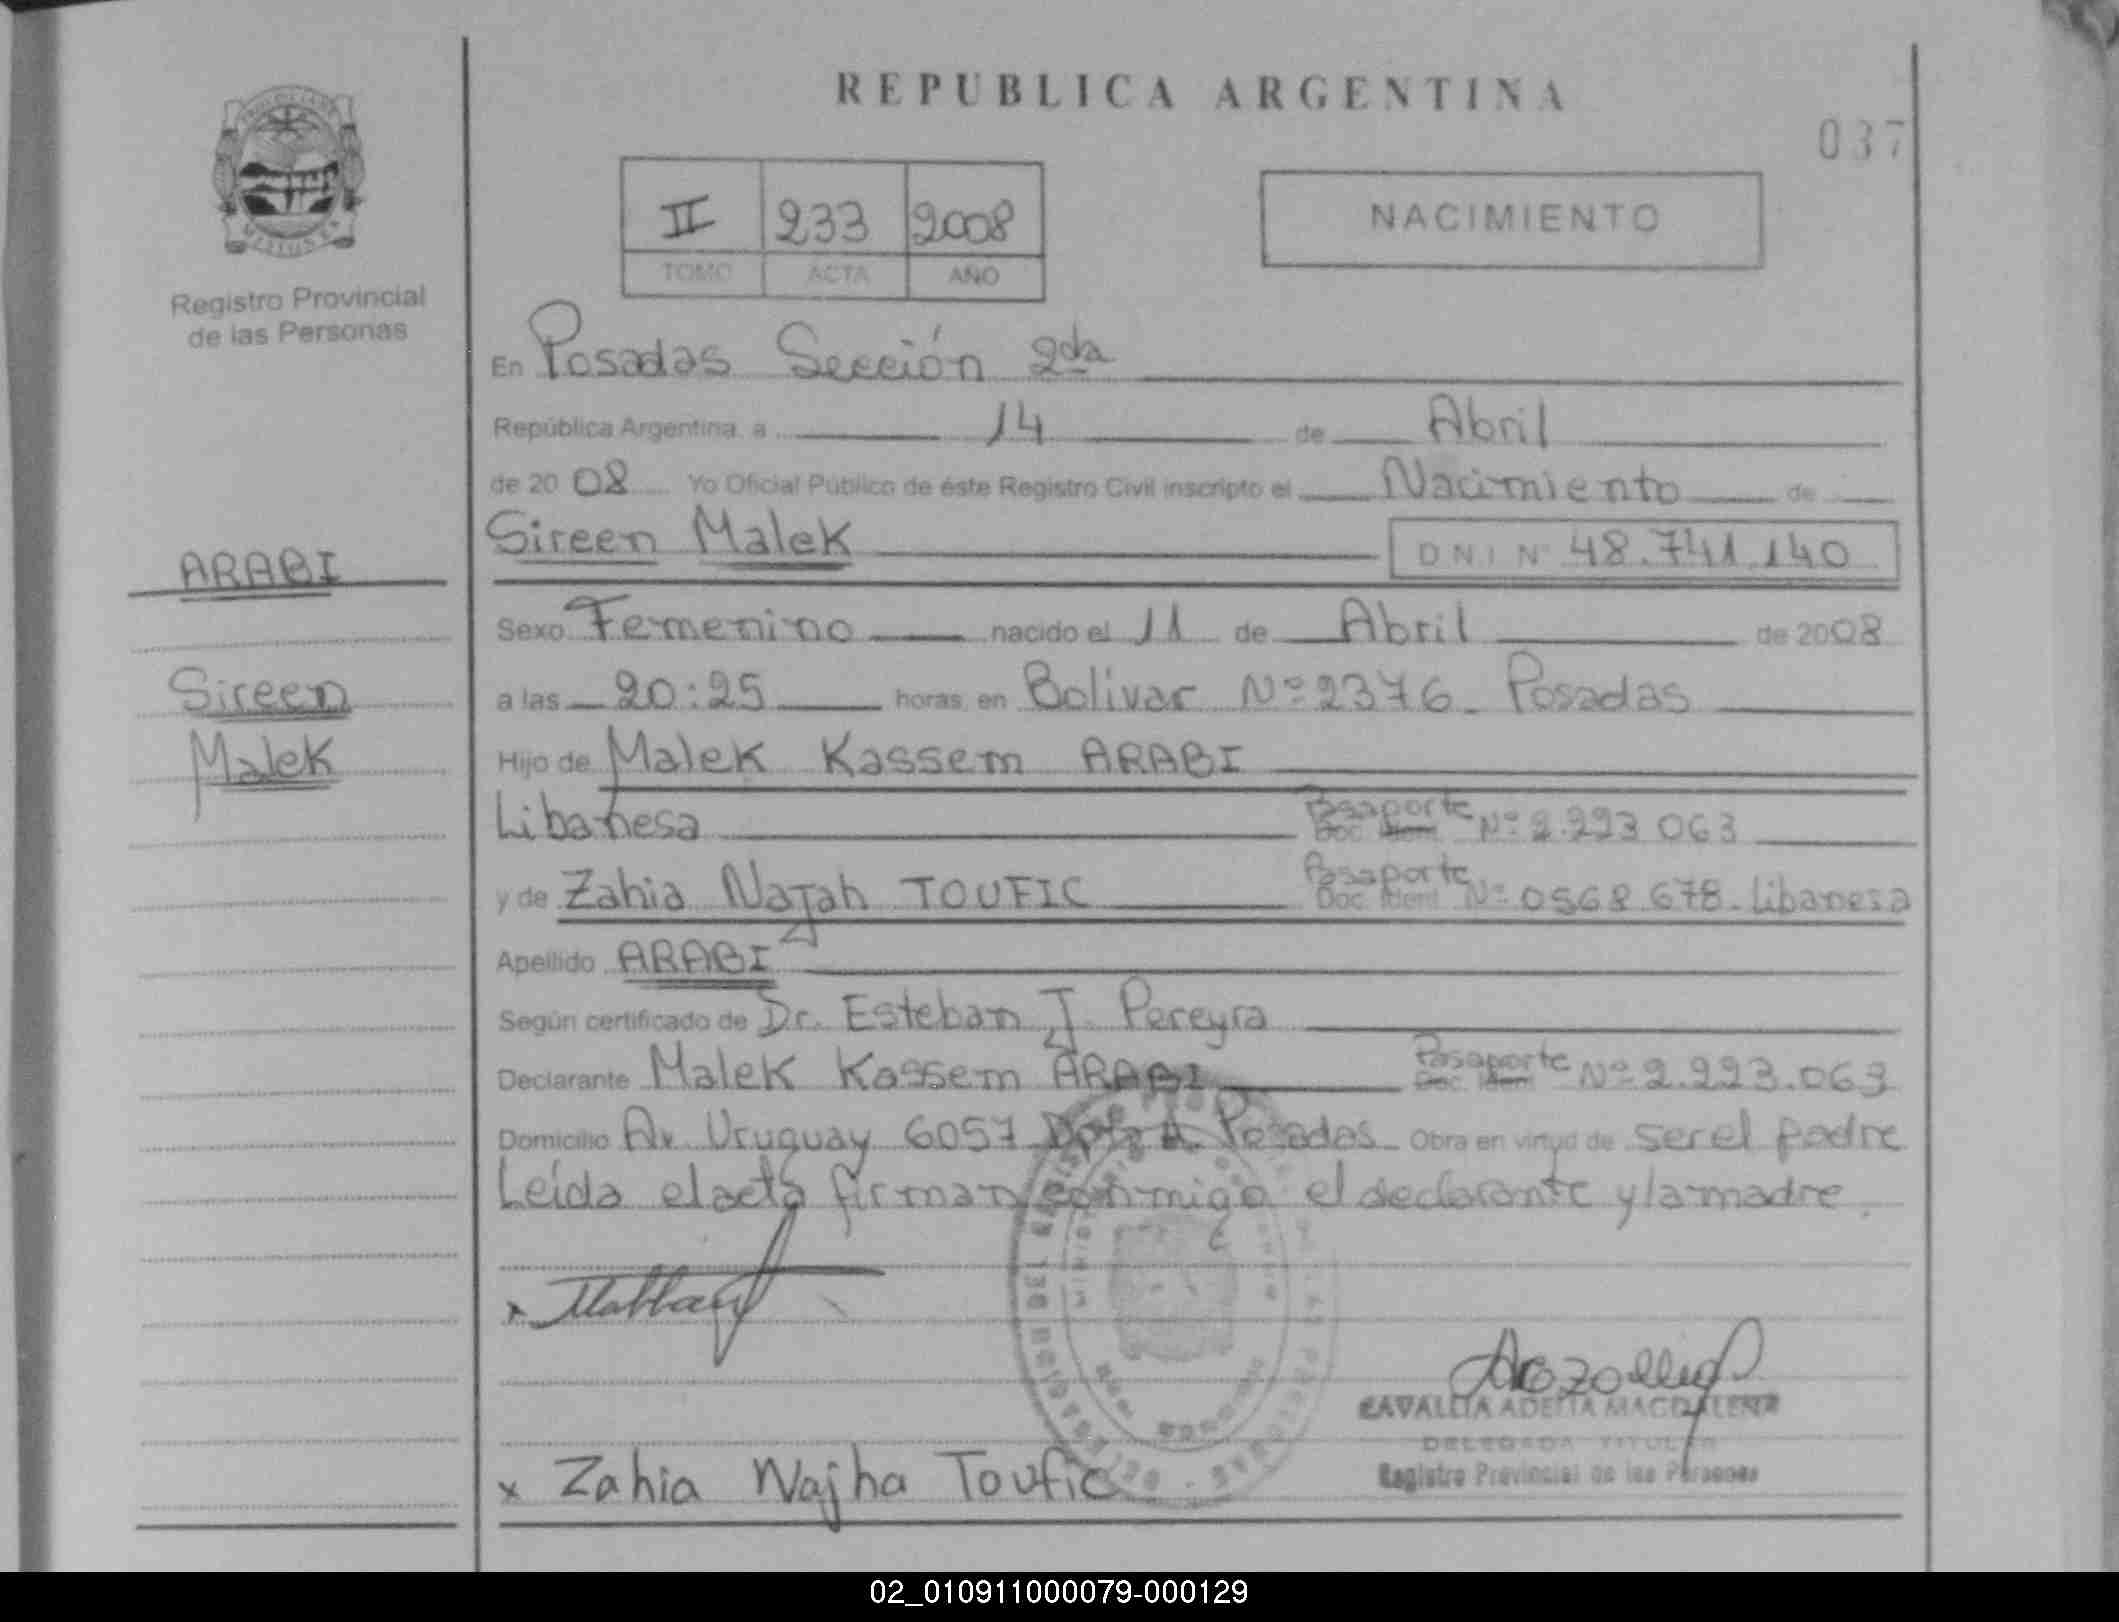 REPUBLICA ARGENTINA
037
II 233 2008
TOMO ACTA AÑO
NACIMIENTO
Registro Provincial
de las Personas
En Posadas Sección 2da
República Argentina, a 14 de Abril
de 20 08 Yo Oficial Público de éste Registro Civil inscripto el Nacimiento de
Sireen Malek DNI Nº 48.741.140
ARABI
Sexo Femenino nacido el 11 de Abril de 2008
Sireen
a las 20:25 horas, en Bolivar Nº 2376_ Posadas
Malek
Hijo de Malek Kassem ARABI
Libanesa Pasaporte Doc. Ident. Nº 2.223 063
y de Zahia Najah TOUFIC Pasaporte Doc. Ident. Nº 0568 678_ Libanesa
Apellido ARABI
Según certificado de Dr. Esteban J. Pereyra
Declarante Malek Kassem ARABI Pasaporte Doc. Ident. Nº 2.223.063
Domicilio Av. Uruguay 6057 Posadas_ Obra en virtud de ser el padre
Leída el acta firman conmigo el declarante y la madre.
ADELIA MAGDALENA
DELEGADA TITULAR
Registro Provincial de las Personas
x Zahia Najha Toufic
02_010911000079-000129